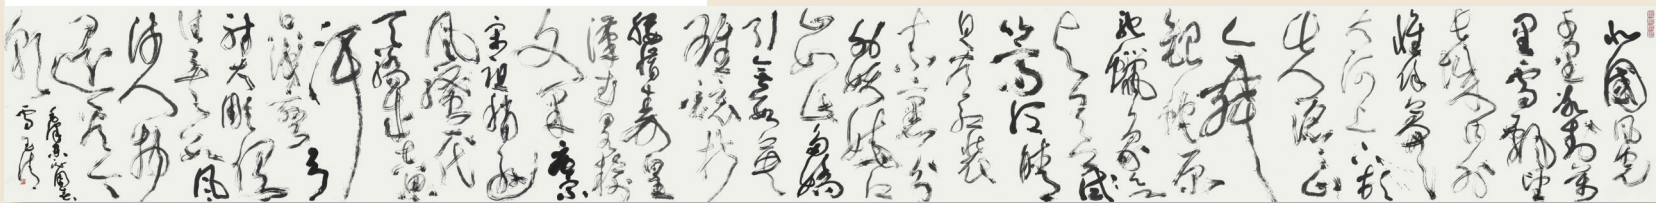 北國風光
千里冰封萬
里雪飄望
長城內外
惟餘莽莽
大河上下頓
失滔滔山
舞
銀蛇原
馳蠟象欲
與天公試
比高須晴
日看紅裝
素裹分
外妖嬈江
山如此多嬌
引無數英
雄競折
腰惜秦皇
漢武略輸
文采唐宗
宋祖稍遜
風騷一代
天驕成吉思
汗
只識彎弓
射大雕俱
往矣數風
流人物
還看今
朝
毛澤東沁園春
雪